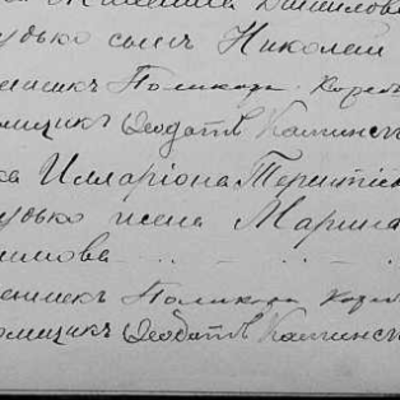 Данилова
удько сынъ Николай
енникъ Поликарпъ Корол
омщикъ Ѳеодотъ Каминск
ка Илларіона Терентіе
удько жена Марина
имова
енникъ Поликарпъ Корол
омщикъ Ѳеодотъ Каминск